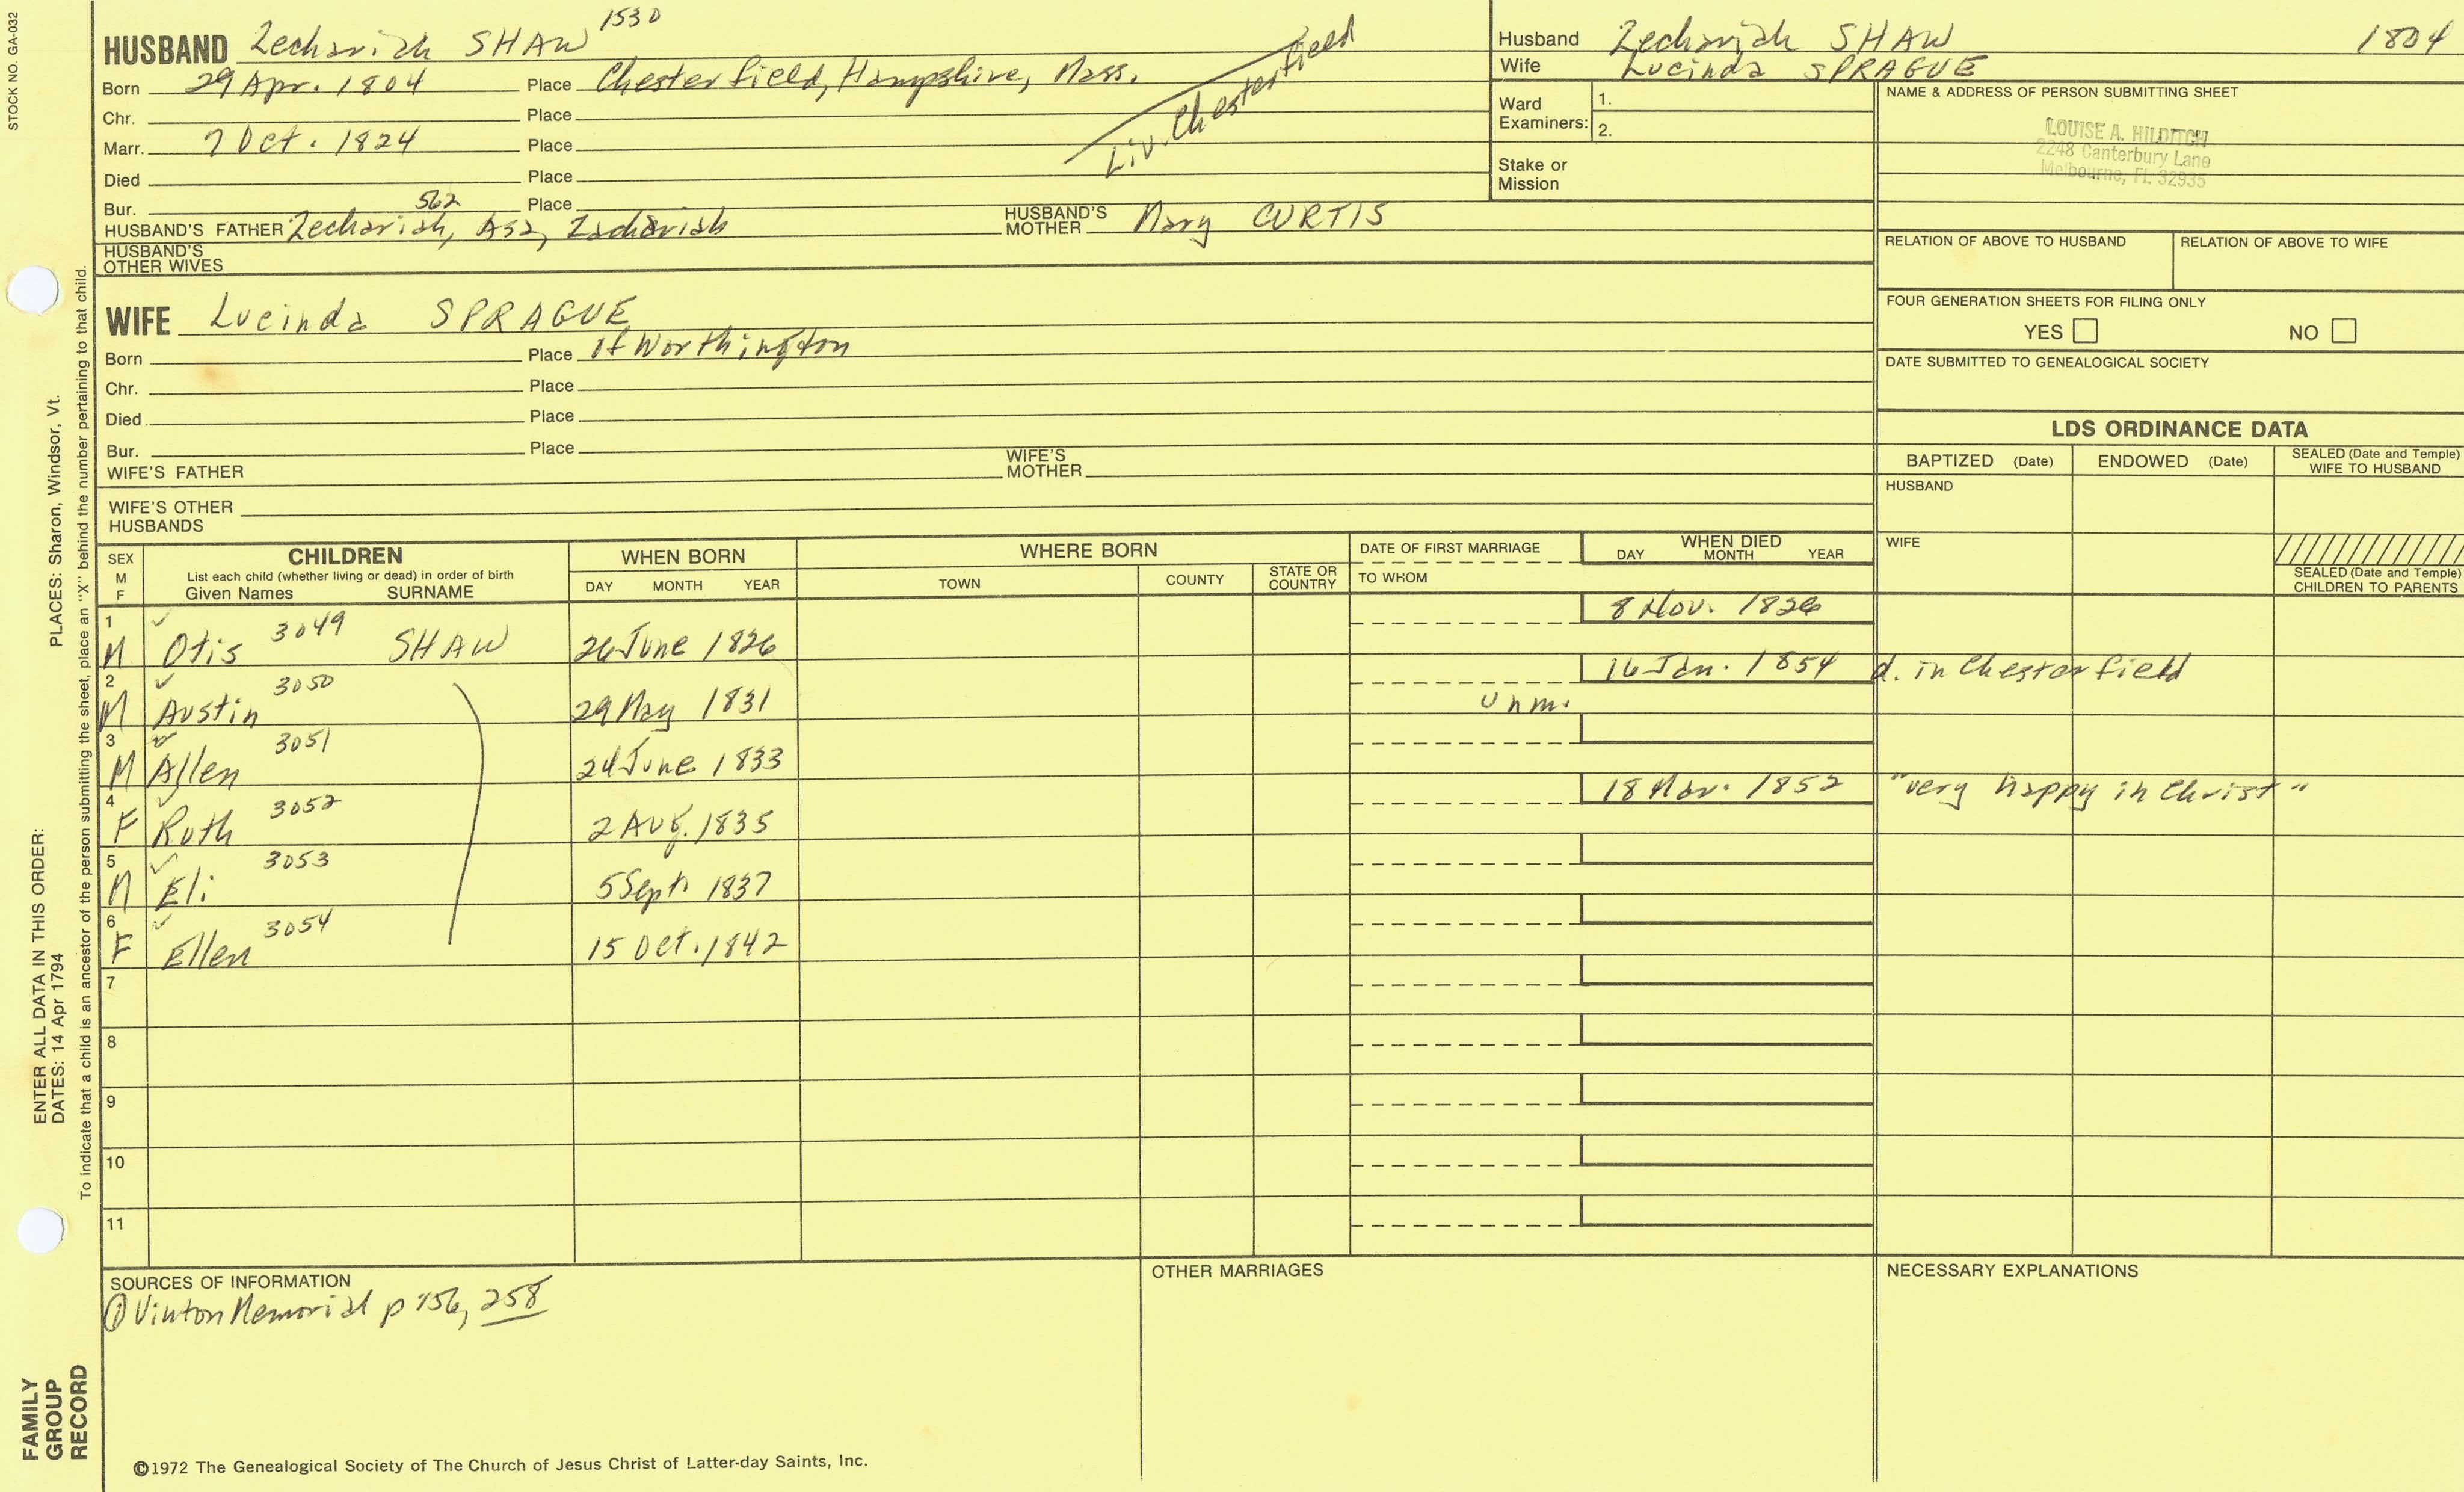 STOCK NO. GA-032
HUSBAND Zechariah SHAW 1530
Born 29 Apr. 1804 Place Chesterfield, Hampshire, Mass.
Liv. Chesterfield
Chr. Place
Marr. 7 Oct. 1824 Place
Died Place
Bur. Place
562
HUSBAND'S FATHER Zechariah, Asa, Zachariah HUSBAND'S MOTHER Mary CURTIS
HUSBAND'S OTHER WIVES
WIFE Lucinda SPRAGUE
Born Place of Worthington
Chr. Place
Died Place
Bur. Place
WIFE'S FATHER WIFE'S MOTHER
WIFE'S OTHER HUSBANDS
Husband Zechariah SHAW 1804
Wife Lucinda SPRAGUE
Ward Examiners: 1.
2.
Stake or Mission
NAME & ADDRESS OF PERSON SUBMITTING SHEET
LOUISE A. HILDITCH
2248 Canterbury Lane
Melbourne, FL 32935
RELATION OF ABOVE TO HUSBAND RELATION OF ABOVE TO WIFE
FOUR GENERATION SHEETS FOR FILING ONLY
YES NO
DATE SUBMITTED TO GENEALOGICAL SOCIETY
LDS ORDINANCE DATA
BAPTIZED (Date) ENDOWED (Date) SEALED (Date and Temple) WIFE TO HUSBAND
HUSBAND
WIFE
SEALED (Date and Temple) CHILDREN TO PARENTS
SEX M F CHILDREN WHEN BORN WHERE BORN DATE OF FIRST MARRIAGE WHEN DIED
List each child (whether living or dead) in order of birth
Given Names SURNAME DAY MONTH YEAR TOWN COUNTY STATE OR COUNTRY TO WHOM DAY MONTH YEAR
1 M Otis 3049 SHAW 26 June 1826 8 Nov. 1826
2 M Austin 3050 29 May 1831 unm. 16 Jan. 1854 d. in Chesterfield
3 M Allen 3051 24 June 1833
4 F Ruth 3052 2 Aug. 1835 18 Mar. 1852 "very happy in Christ"
5 M Eli 3053 5 Sept. 1837
6 F Ellen 3054 15 Oct. 1842
7
8
9
10
11
SOURCES OF INFORMATION
① Vinton Memorial p 156, 258
OTHER MARRIAGES
NECESSARY EXPLANATIONS
©1972 The Genealogical Society of The Church of Jesus Christ of Latter-day Saints, Inc.
FAMILY GROUP RECORD
ENTER ALL DATA IN THIS ORDER:
DATES: 14 Apr 1794 PLACES: Sharon, Windsor, Vt.
To indicate that a child is an ancestor of the person submitting the sheet, place an "X" behind the number pertaining to that child.